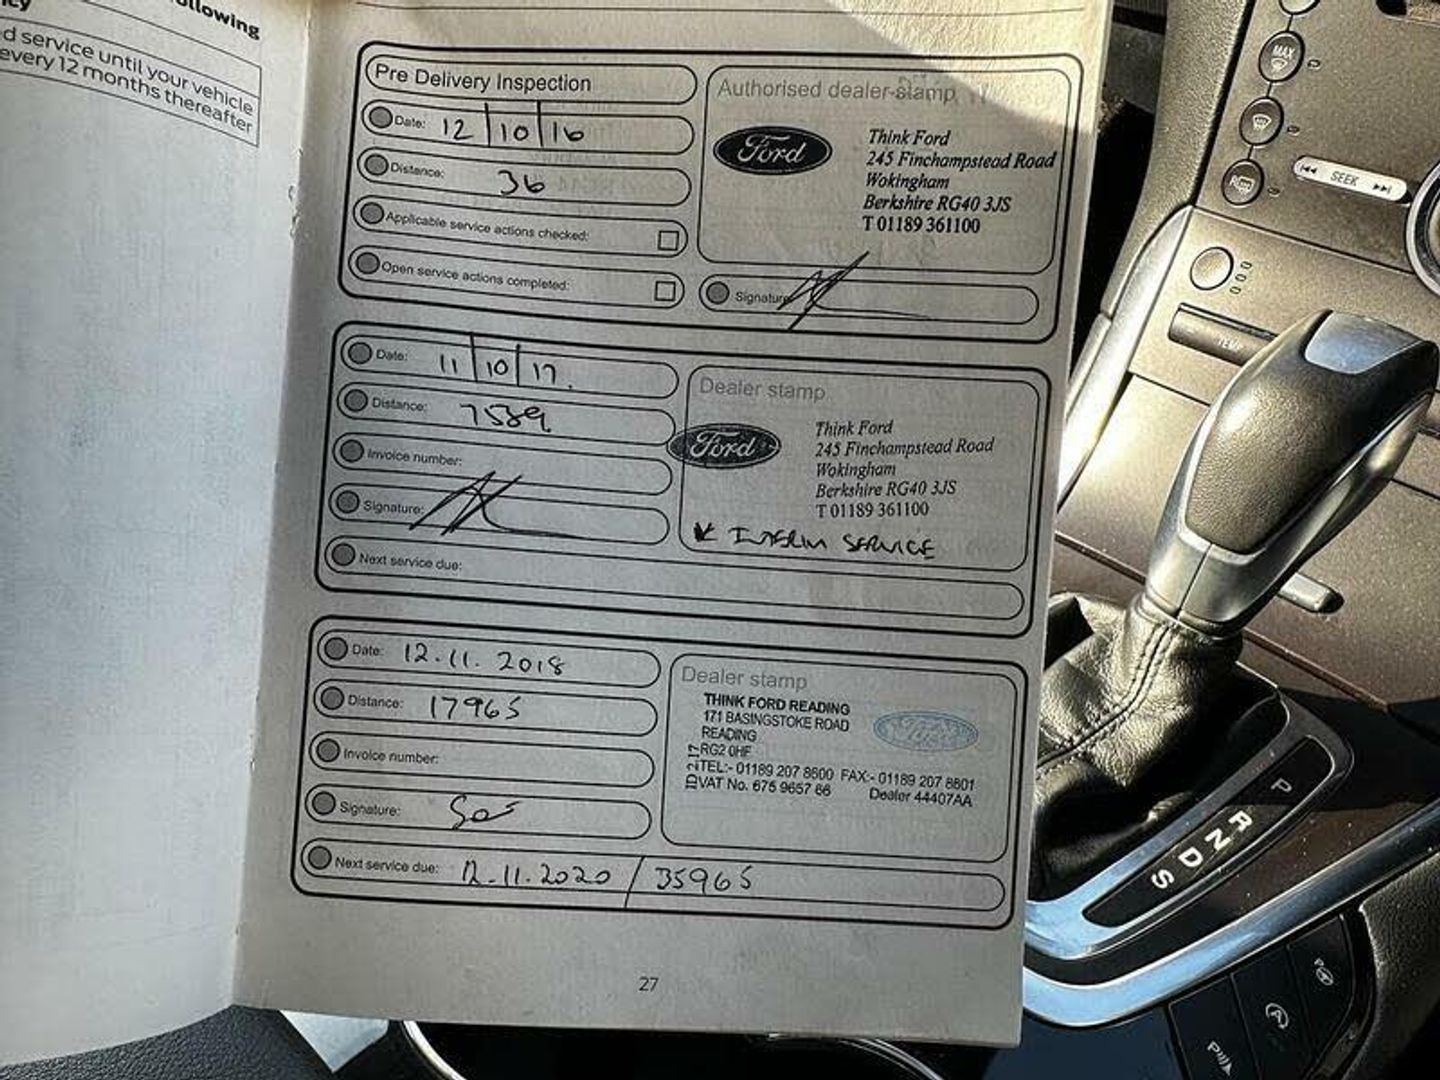 ollowing
cy
d service until your vehicle
every 12 months thereafter
Pre Delivery Inspection
Date: 12/10/16
Distance: 36
Applicable service actions checked:
Open service actions completed:
Authorised dealer stamp
Ford
Think Ford
245 Finchampstead Road
Wokingham
Berkshire RG40 3JS
T 01189 361100
Signature
Date: 11/10/17.
Distance: 7589
Invoice number:
Signature:
Next service due:
Dealer stamp
Ford
Think Ford
245 Finchampstead Road
Wokingham
Berkshire RG40 3JS
T 01189 361100
INTERIM SERVICE
Date: 12.11.2018
Distance: 17965
Invoice number:
Signature:
Next service due: 12.11.2020 / 35965
Dealer stamp
THINK FORD READING
171 BASINGSTOKE ROAD
READING
RG2 0HF
TEL:- 01189 207 8600 FAX:- 01189 207 8601
VAT No. 675 9657 66 Dealer 44407AA
Ford
ID 2 17
27
MAX
R
SEEK
TEMP
P
R
N
D
S
P
A
P